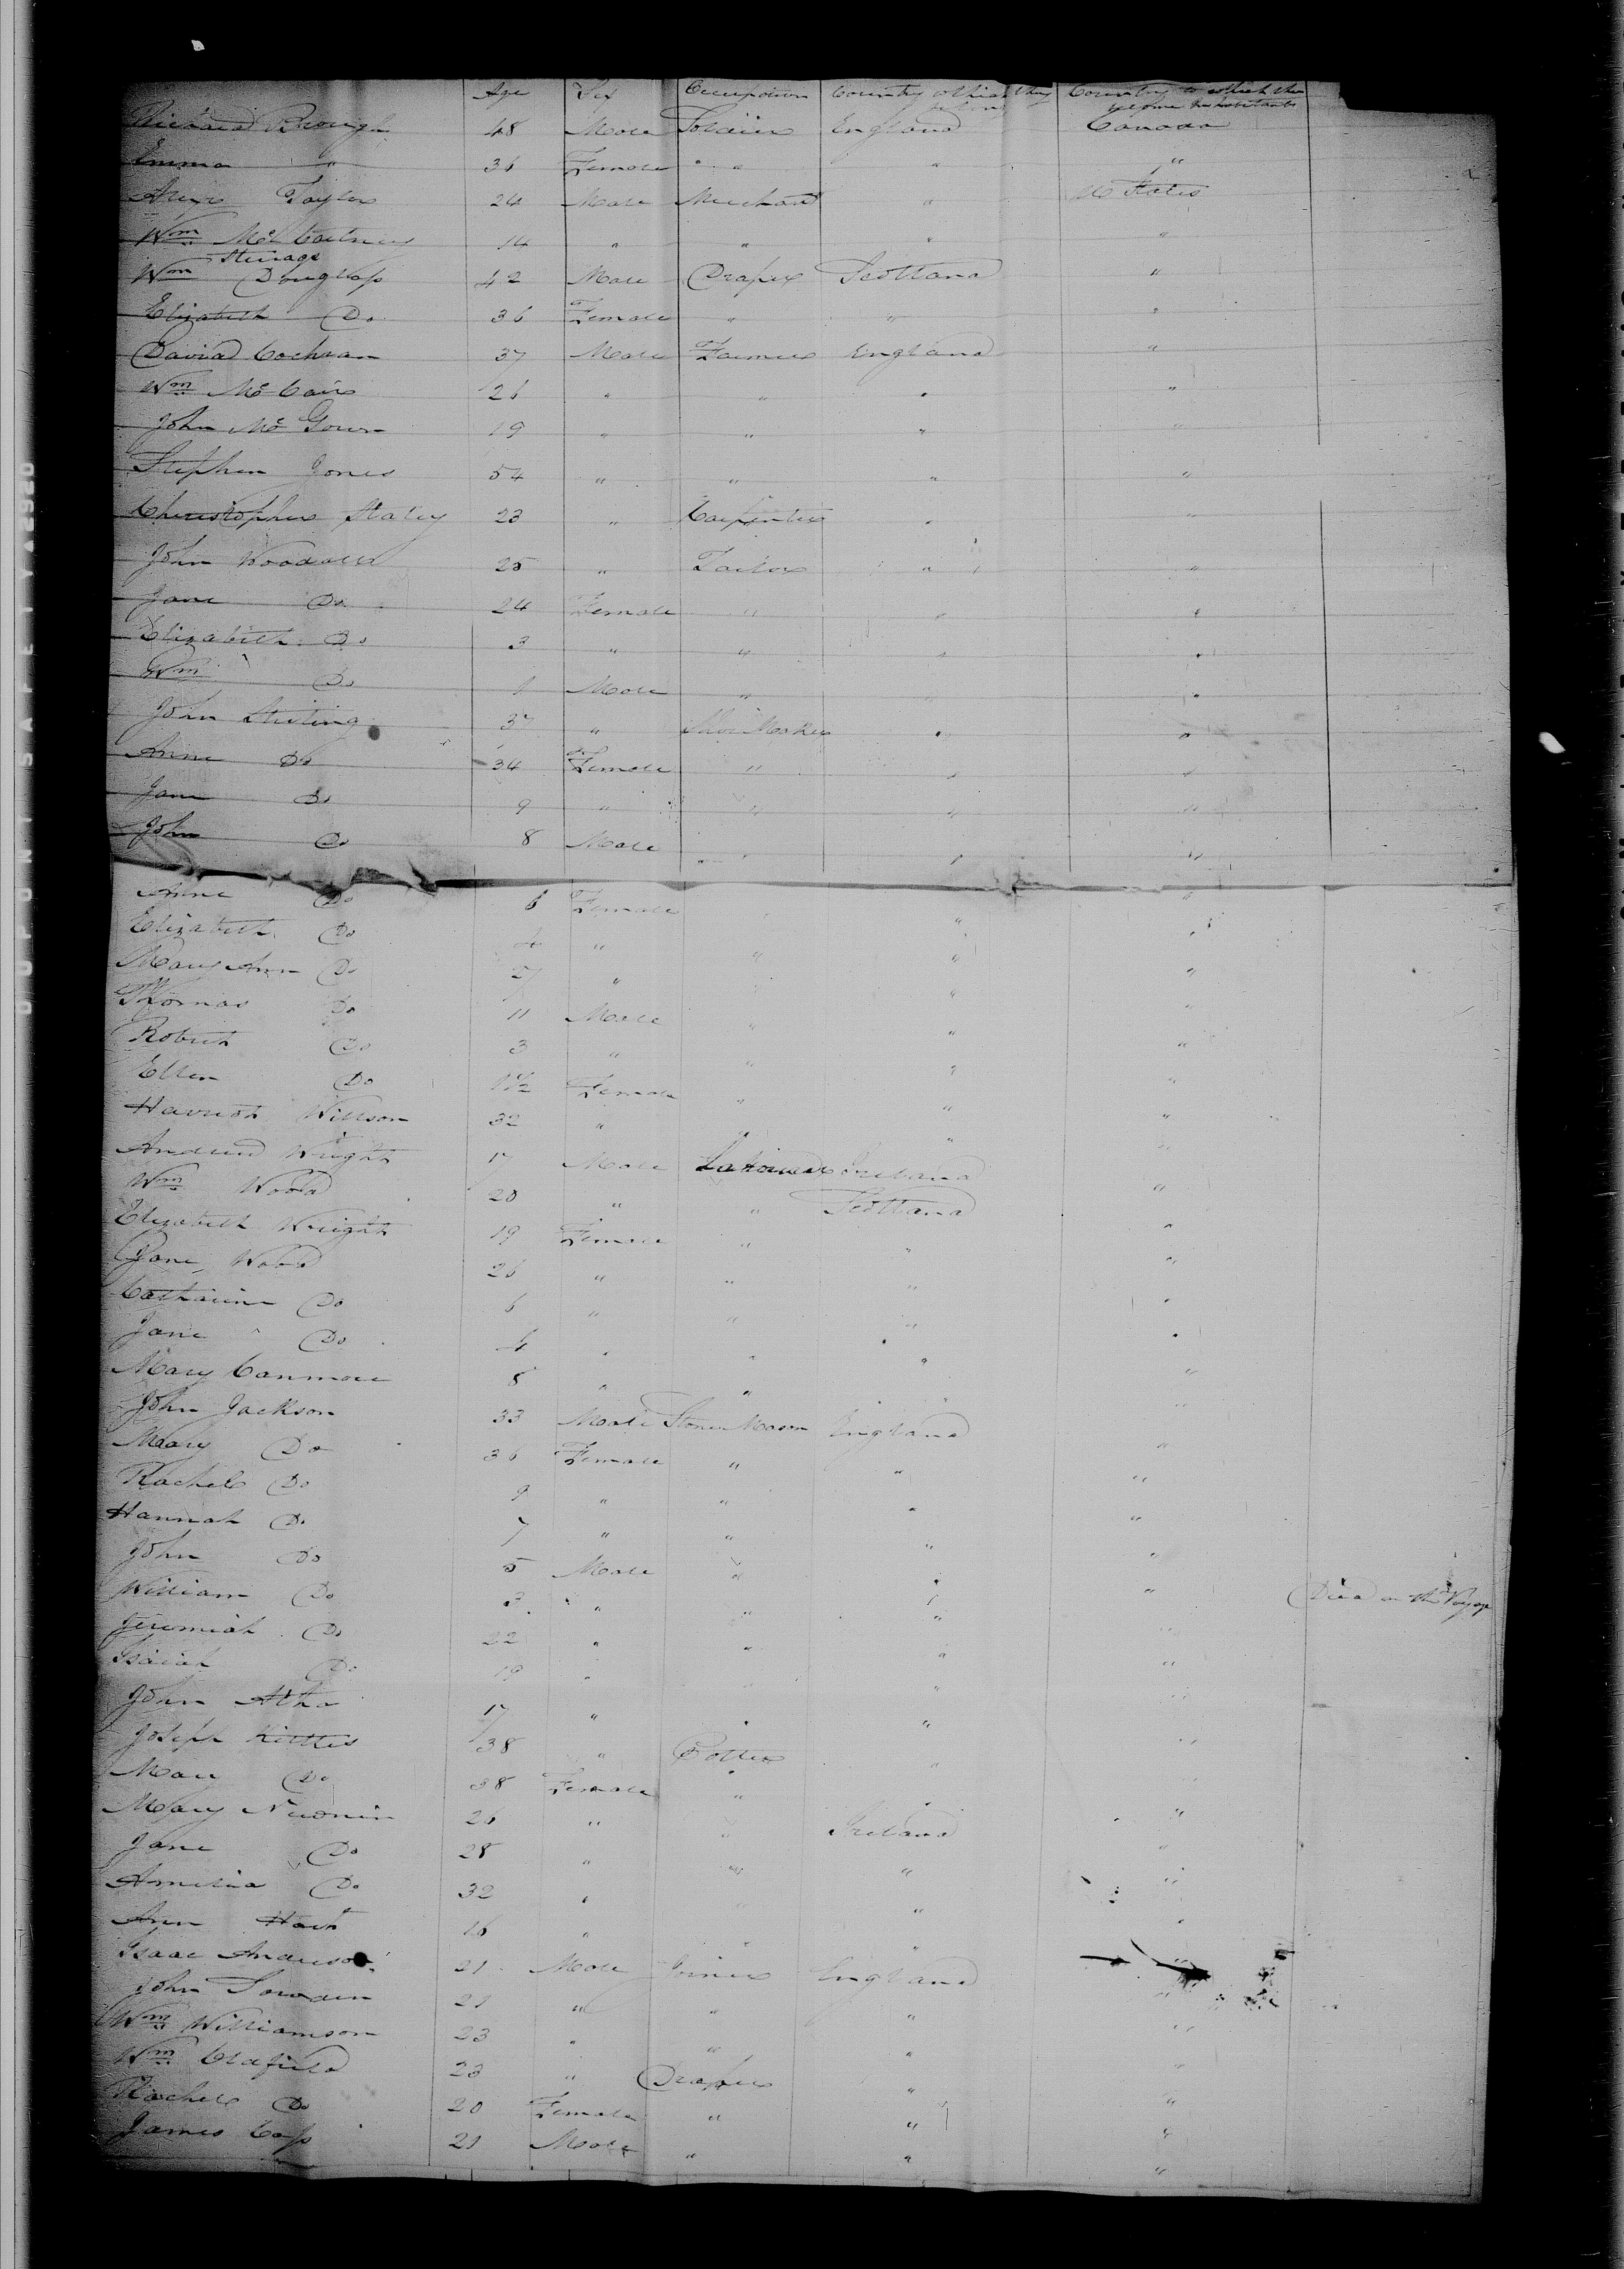 Age Sex Occupation Country to which they belong Country to which they become inhabitants
Richard Brough 48 Male Soldier England Canada
Emma " 36 Female " " "
Alexr Taylor 24 Male Merchant " U States
Wm McCartney 14 " " " "
Steerage
Wm Douglass 42 Male Draper Scotland "
Elizabeth Do 36 Female " " "
David Cochran 37 Male Farmer England "
Wm McCair 26 " " " "
John McGown 19 " " " "
Stephen Jones 54 " " " "
Christopher Staley 23 " Carpenter " "
John Woodall 25 " Tailor " "
Jane Do 24 Female " " "
Elizabeth Do 3 " " " "
Wm Do 1 Male " " "
John Stirling 37 " Shoe Maker " "
Anne Do 34 Female " " "
Jane Do 9 " " " "
John Do 8 Male " " "
Anne Do 6 Female " " "
Elizabeth Do 4 " " " "
Mary Ann Do " " " "
Thomas Do 11 Male " " "
Robert Do 3 " " " "
Ellen Do 1½ Female " " "
Harriot Willson 32 " " " "
Andrew Wright 17 Male Labourer Ireland "
Wm Wood 20 " " Scotland "
Elizabeth Wright 19 Female " " "
Jane Wood 26 " " " "
Catharine Do 6 " " " "
Jane Do 4 " " " "
Mary Canmore 8 " " " "
John Jackson 33 Male Stone Mason England "
Mary Do 36 Female " " "
Rachel Do 9 " " " "
Hannah Do 7 " " " "
John Do 5 Male " " "
William Do 3 " " " " Died on the Voyage
Jeremiah Do 22 " " " "
Isaiah Do 19 " " " "
John Atha 17 " " " "
Joseph 38 " Potter " "
Mary Do 38 Female " " "
Mary 26 " " Ireland "
Jane Do 28 " " " "
Amelia Do 32 " " " "
Ann 16 " " " "
Isaac Anderson 21 Male Joiner England "
John Sowden 21 " " " "
Wm Williamson 23 " " " "
Wm Oldfield 23 " Draper " "
Rachel Do 20 Female " " "
James Cass 21 Male " " "